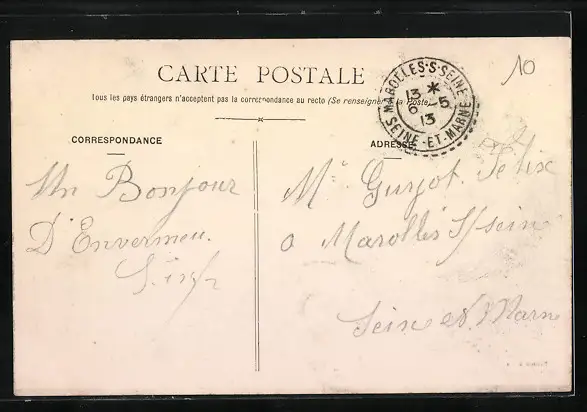 CARTE POSTALE
Tous les pays étrangers n'acceptent pas la correspondance au recto (Se renseigner à la Poste)
MAROLLES-S-SEINE
13 *
6 -5
13
SEINE-ET-MARNE
10
CORRESPONDANCE
ADRESSE
Un Bonjour
D'Envermeu.
Mr Guyot. Félix
a Marolles S/sein
Seine et Marne